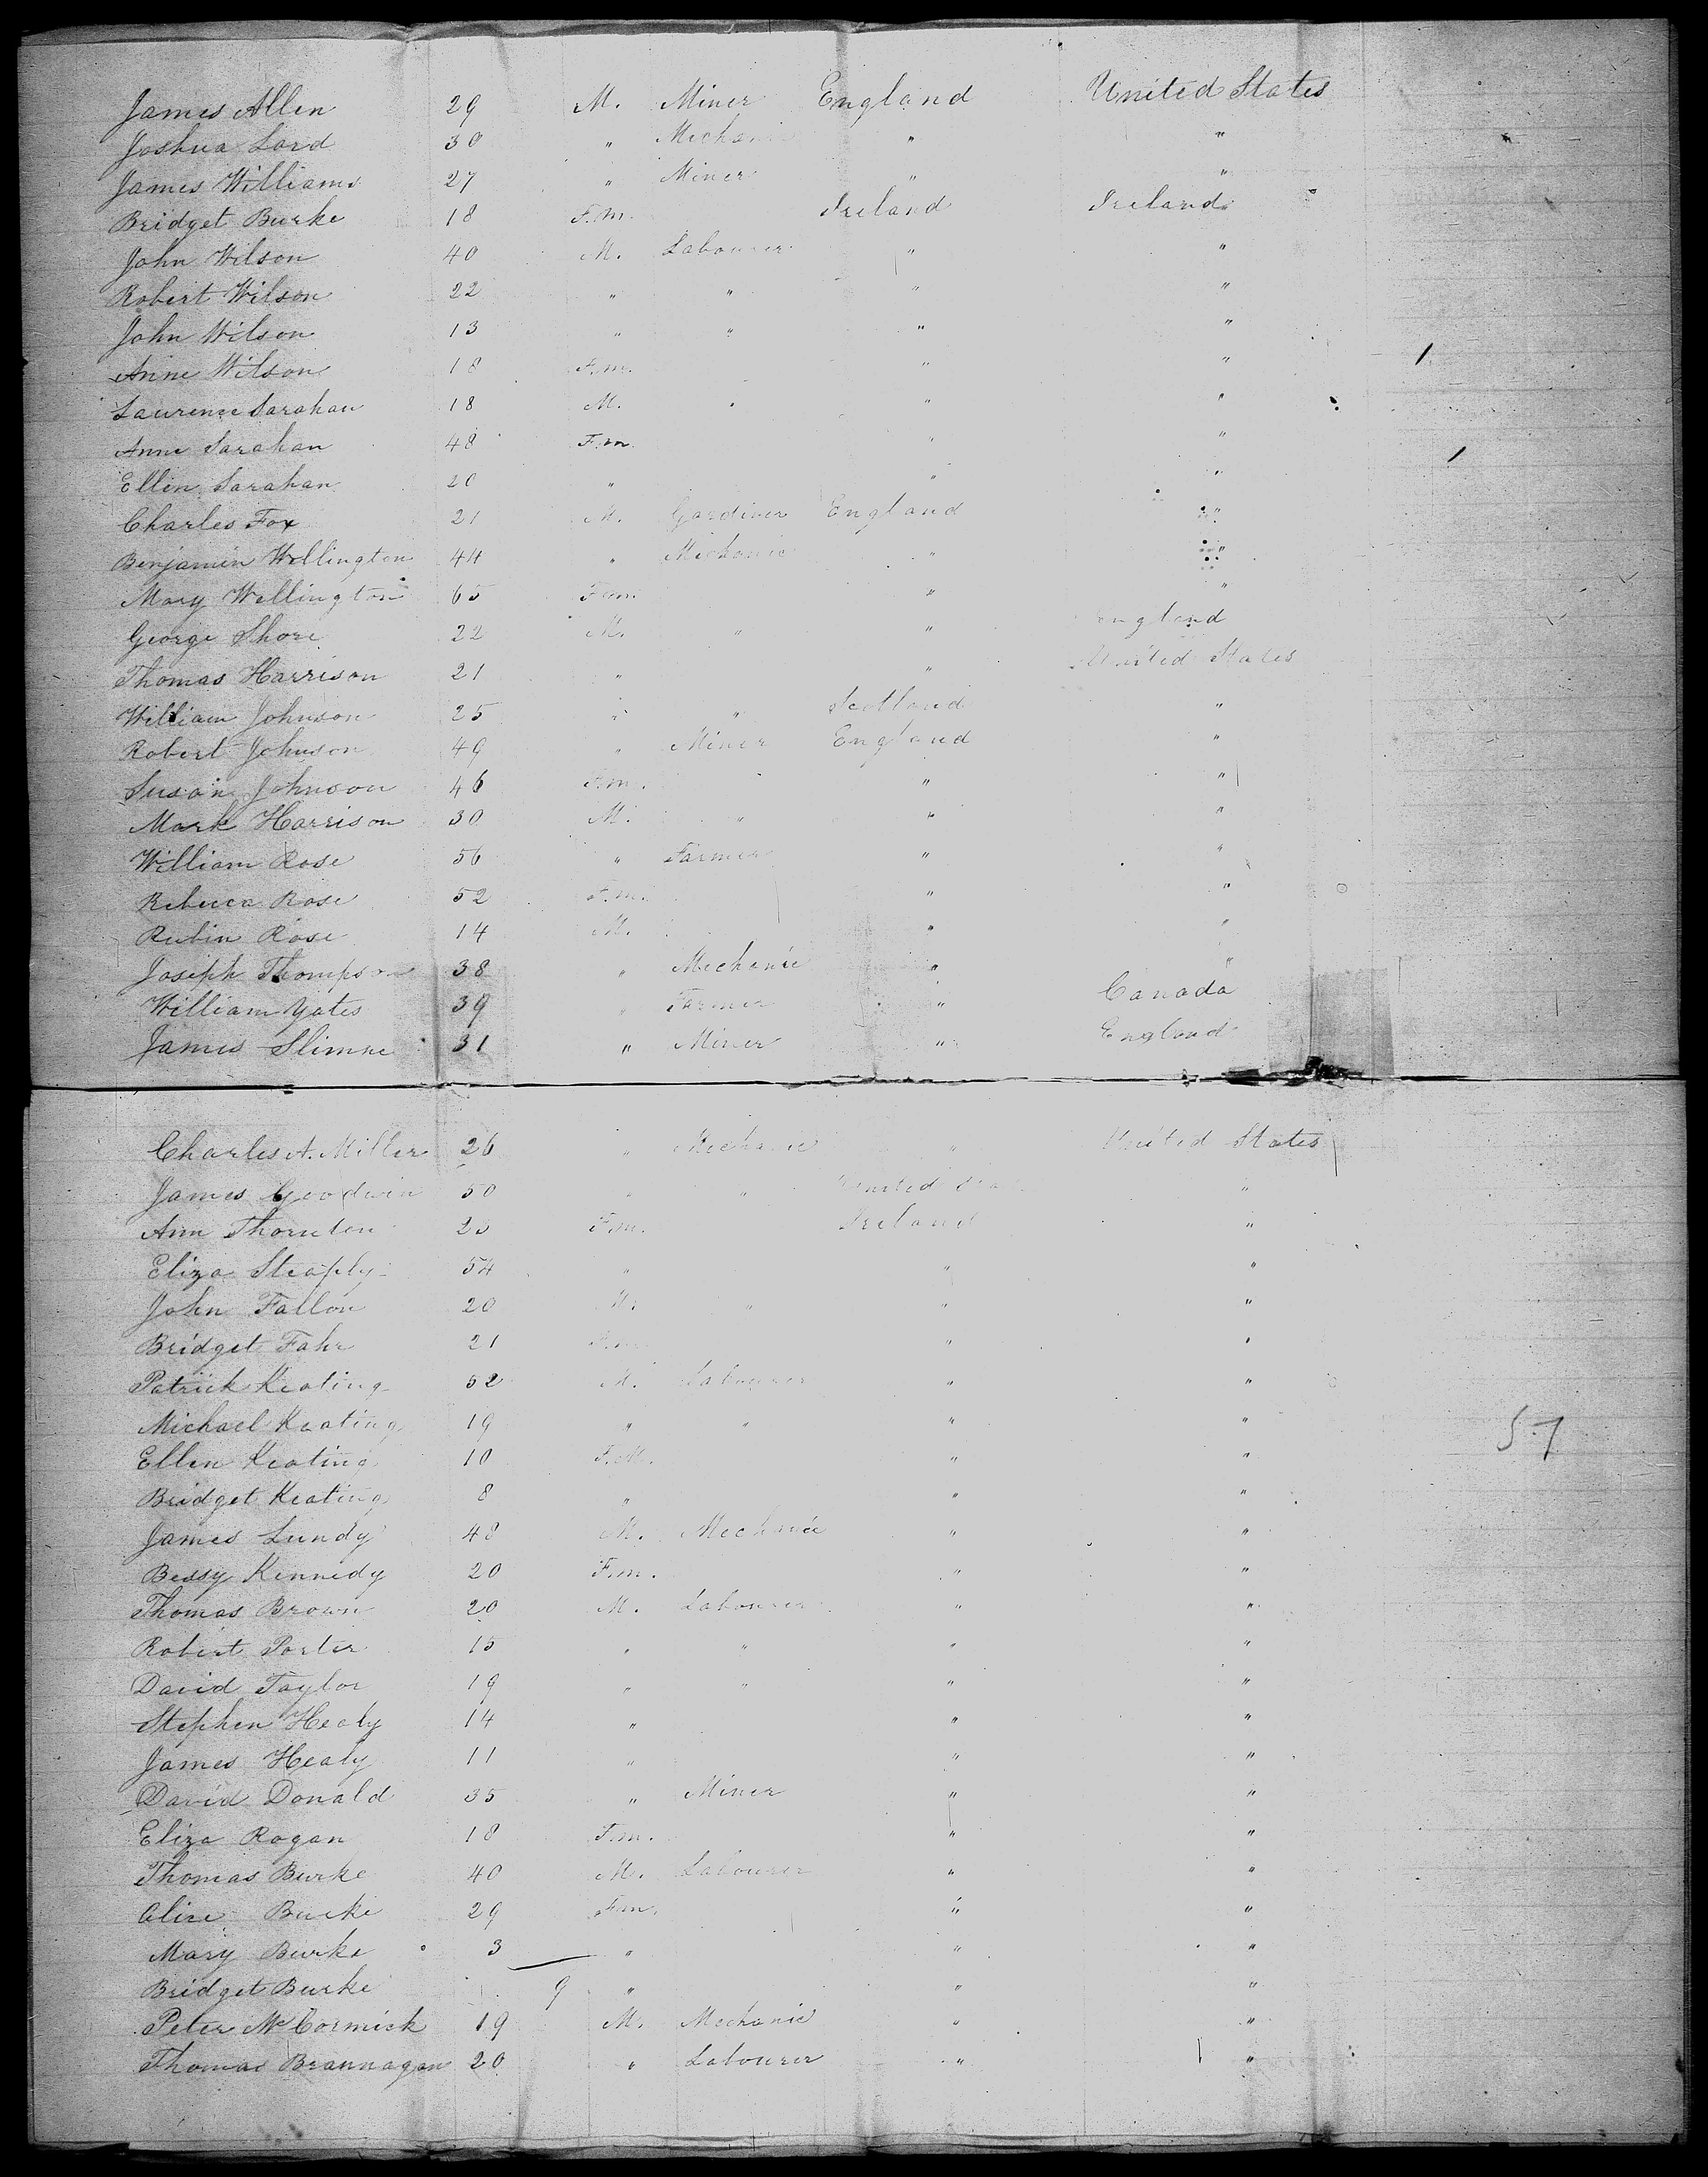 James Allen 29 M. Miner England United States
Joshua Lord 30 " Mechanic " "
James Williams 27 " Miner " "
Bridget Burke 18 F.m. Ireland Ireland
John Wilson 40 M. Labourer " "
Robert Wilson 22 " " " "
John Wilson 13 " " " "
Anne Wilson 18 F.m. " "
Laurence Sarahan 18 M. " "
Anne Sarahan 48 F.m. " "
Ellin Sarahan 20 " " "
Charles Fox 21 M. Gardiner England "
Benjamin Wellington 44 " Mechanic " "
Mary Wellington 65 F.m. " "
George Shore 22 M. " " England
Thomas Harrison 21 " " United States
William Johnson 25 " " Scotland "
Robert Johnson 49 " Miner England "
Susan Johnson 46 F.m. " "
Mark Harrison 30 M. " " "
William Rose 56 " Farmer " "
Rebecca Rose 52 F.m. " "
Rubin Rose 14 M. " "
Joseph Thompson 38 " Mechanic " "
William Yates 39 " Farmer " Canada
James Slimne 31 " Miner " England
Charles A. Miller 26 " Mechanic " United States
James Goodwin 50 " " United Stat "
Ann Thornton F.m. Ireland "
Eliza Steaply 54 " " "
John Fallon 20 M. " " "
Bridget Fahr 21 F.m. " "
Patrick Keating 52 M. Labourer " "
Michael Keating 19 " " " "
Ellen Keating 10 F.M. " "
Bridget Keating 8 " " "
James Lundy 48 M. Mechanic " "
Bessy Kennedy 20 F.m. " "
Thomas Brown 20 M. Labourer " "
Robert Porter 15 " " " "
David Taylor 19 " " " "
Stephen Healy 14 " " "
James Healy 11 " " "
David Donald 35 " Miner " "
Eliza Rogan 18 F.m. " "
Thomas Burke 40 M. Labourer " "
Alice Burke 29 F.m. " "
Mary Burke 3 " " "
Bridget Burke 9 " " "
Peter McCormick 19 M. Mechanic " "
Thomas Brannagan 20 " Labourer " "